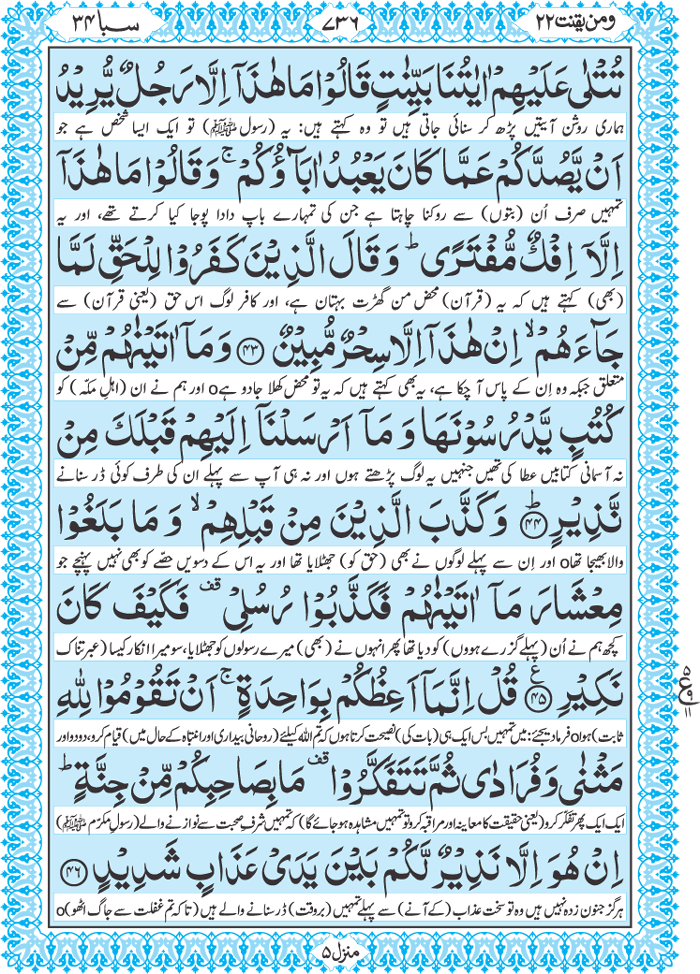 ومن یقنت ۲۲
۷۳۶
سبا ۳۴
تُتْلٰی عَلَیْهِمْ اٰیٰتُنَا بَیِّنٰتٍ قَالُوْا مَا هٰذَاۤ اِلَّا رَجُلٌ یُّرِیْدُ
ہماری روشن آیتیں پڑھ کر سنائی جاتی ہیں تو وہ کہتے ہیں: یہ (رسول ﷺ) تو ایک ایسا شخص ہے جو
اَنْ یَّصُدَّكُمْ عَمَّا كَانَ یَعْبُدُ اٰبَآؤُكُمْ ۚ وَ قَالُوْا مَا هٰذَاۤ
تمہیں صرف اُن (بتوں) سے روکنا چاہتا ہے جن کی تمہارے باپ دادا پوجا کیا کرتے تھے، اور یہ
اِلَّاۤ اِفْكٌ مُّفْتَرًی ؕ وَ قَالَ الَّذِیْنَ كَفَرُوْا لِلْحَقِّ لَمَّا
(بھی) کہتے ہیں کہ یہ (قرآن) محض من گھڑت بہتان ہے، اور کافر لوگ اس حق (یعنی قرآن) سے
جَآءَهُمْ ۙ اِنْ هٰذَاۤ اِلَّا سِحْرٌ مُّبِیْنٌ ﴿۴۳﴾ وَ مَاۤ اٰتَیْنٰهُمْ مِّنْ
متعلق جبکہ وہ اِن کے پاس آ چکا ہے، یہ بھی کہتے ہیں کہ یہ تو محض کھلا جادو ہےo اور ہم نے ان (اہلِ مکّہ) کو
كُتُبٍ یَّدْرُسُوْنَهَا وَ مَاۤ اَرْسَلْنَاۤ اِلَیْهِمْ قَبْلَكَ مِنْ
نہ آسمانی کتابیں عطا کی تھیں جنہیں یہ لوگ پڑھتے ہوں اور نہ ہی آپ سے پہلے ان کی طرف کوئی ڈر سنانے
نَّذِیْرٍ ﴿ؕ۴۴﴾ وَ كَذَّبَ الَّذِیْنَ مِنْ قَبْلِهِمْ ۙ وَ مَا بَلَغُوْا
والا بھیجا تھاo اور اِن سے پہلے لوگوں نے بھی (حق کو) جھٹلایا تھا اور یہ اس کے دسویں حصّے کو بھی نہیں پہنچے جو
مِعْشَارَ مَاۤ اٰتَیْنٰهُمْ فَكَذَّبُوْا رُسُلِیْ ۫ فَكَیْفَ كَانَ
کچھ ہم نے اُن (پہلے گزرے ہووں) کو دیا تھا پھر انہوں نے (بھی) میرے رسولوں کو جھٹلایا، سو میرا انکار کیسا (عبرتناک
نَكِیْرِ ﴿۴۵﴾ ع قُلْ اِنَّمَاۤ اَعِظُكُمْ بِوَاحِدَةٍ ۚ اَنْ تَقُوْمُوْا لِلّٰهِ
ثابت) ہواo فرما دیجئے: میں تمہیں بس ایک ہی (بات کی) نصیحت کرتا ہوں کہ تم اللہ کیلئے (روحانی بیداری اور انتباہ کے حال میں) قیام کرو، دو دو اور
مَثْنٰی وَ فُرَادٰی ثُمَّ تَتَفَكَّرُوْا ۫ مَا بِصَاحِبِكُمْ مِّنْ جِنَّةٍ ؕ
ایک ایک پھر تفکّر کرو (یعنی حقیقت کا معاینہ اور مراقبہ کرو تو تمہیں مشاہدہ ہو جائے گا) کہ تمہیں شرفِ صحبت سے نوازنے والے (رسولِ مکرّم ﷺ)
اِنْ هُوَ اِلَّا نَذِیْرٌ لَّكُمْ بَیْنَ یَدَیْ عَذَابٍ شَدِیْدٍ ﴿۴۶﴾
ہرگز جنون زدہ نہیں ہیں وہ تو سخت عذاب (کے آنے) سے پہلے تمہیں (بروقت) ڈر سنانے والے ہیں (تاکہ تم غفلت سے جاگ اٹھو)o
منزل ۵